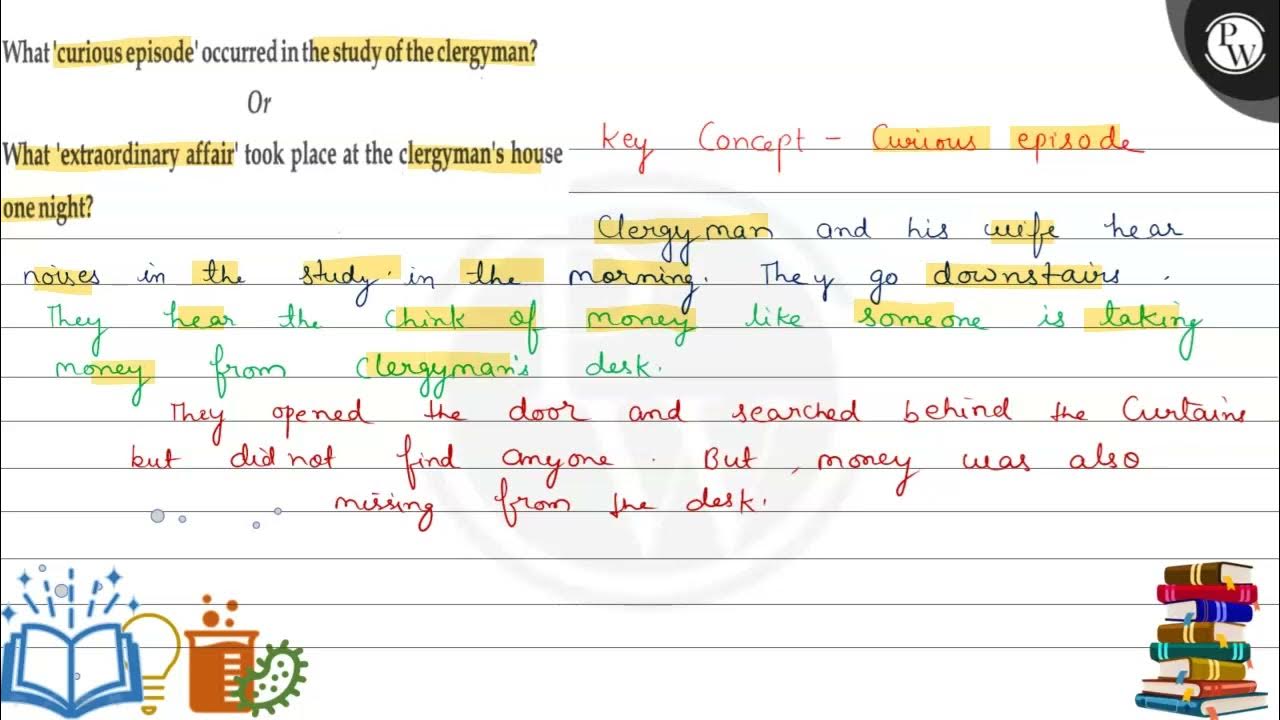 What 'curious episode' occurred in the study of the clergyman?
Or
What 'extraordinary affair' took place at the clergyman's house
one night?
PW
Key Concept - Curious episode
Clergyman and his wife hear
noises in the study in the morning. They go downstairs.
They hear the Chink of money like someone is taking
money from Clergyman's desk.
They opened the door and searched behind the Curtains
but did not find anyone. But, money was also
missing from the desk.